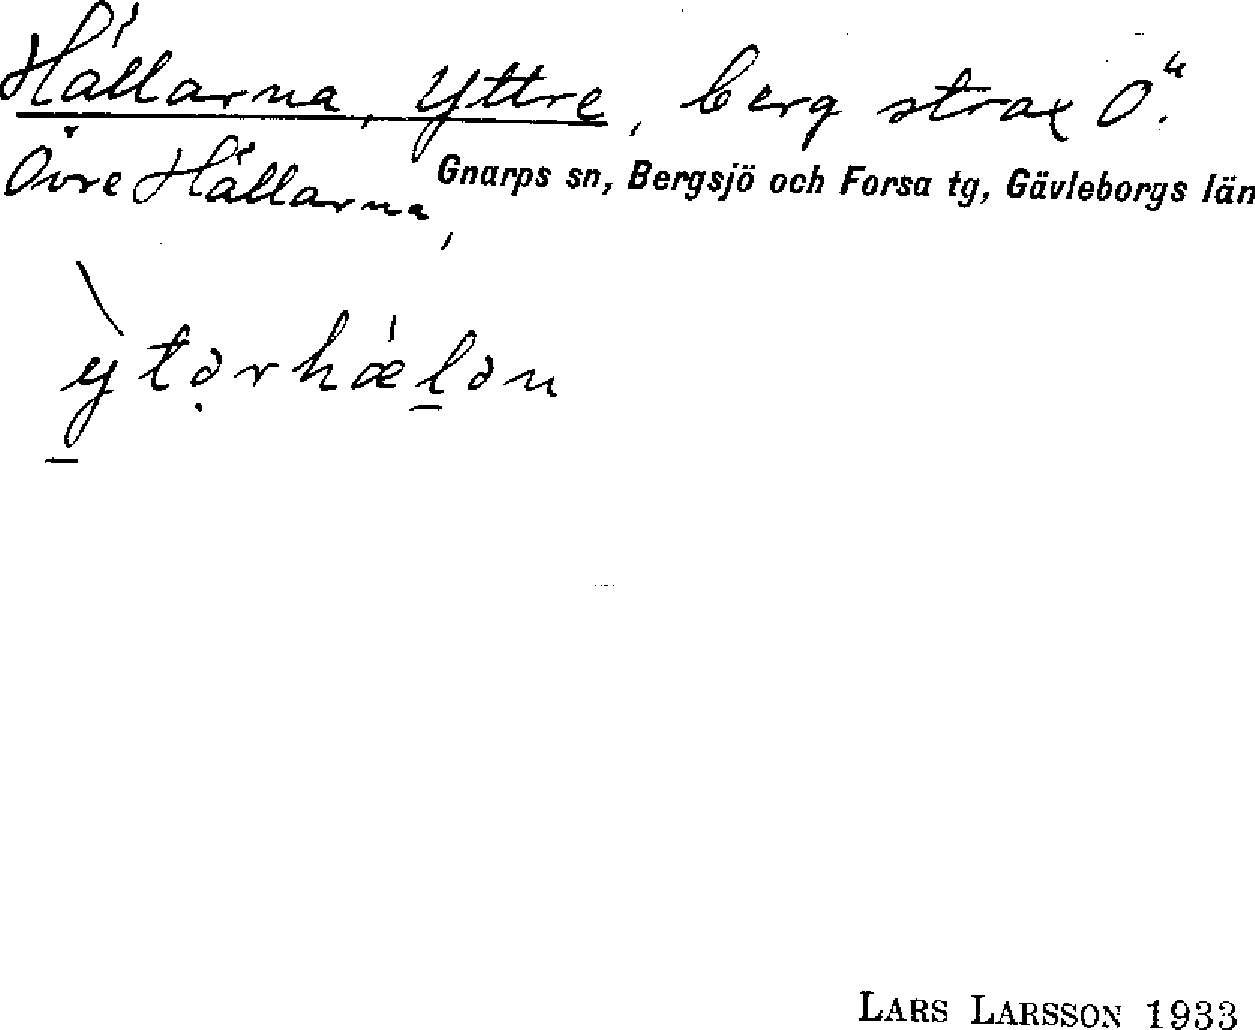 Hällarna, Yttre, berg strax Ö.
Övre Hällarna,
Gnarps sn, Bergsjö och Forsa tg, Gävleborgs län
ỳtərhæ̀lən
LARS LARSSON 1933